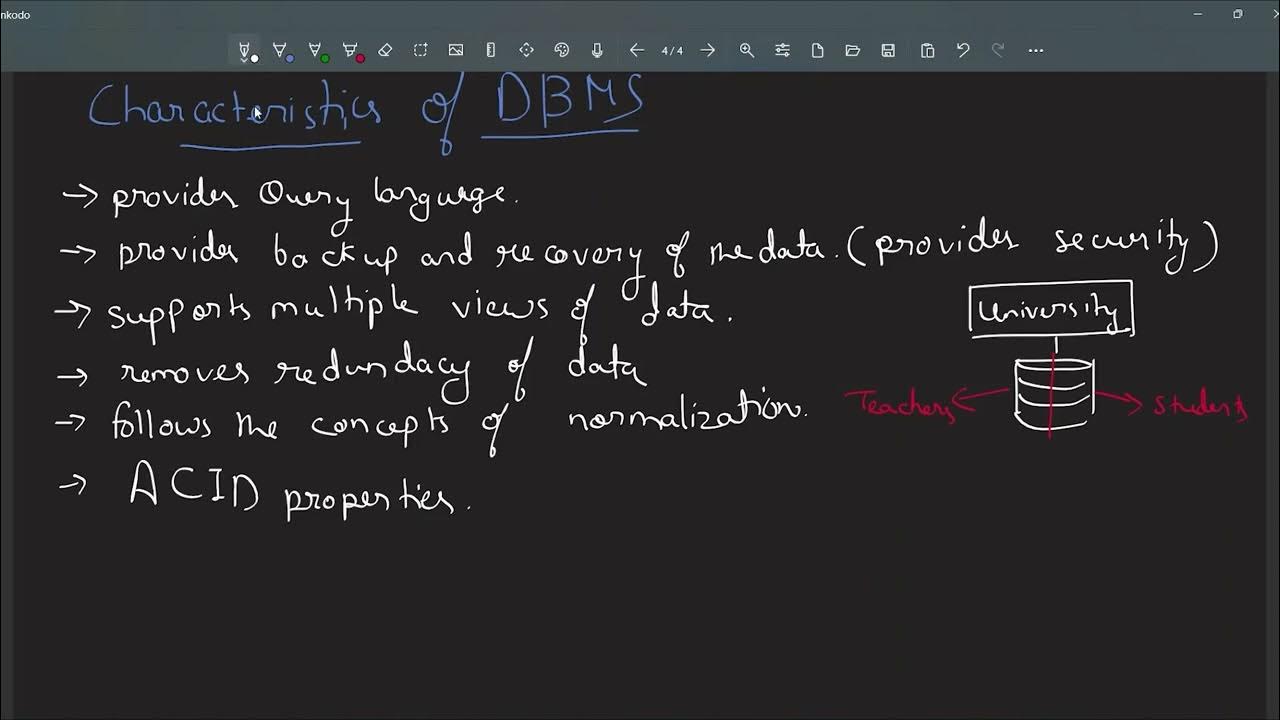 nkodo
4/4
Characteristics of DBMS
→ provides Query language.
→ provides backup and recovery of the data. (provides security)
→ supports multiple views of data.
University
→ removes redundacy of data
Teachers
Students
→ follows the concepts of normalization.
→ ACID properties.